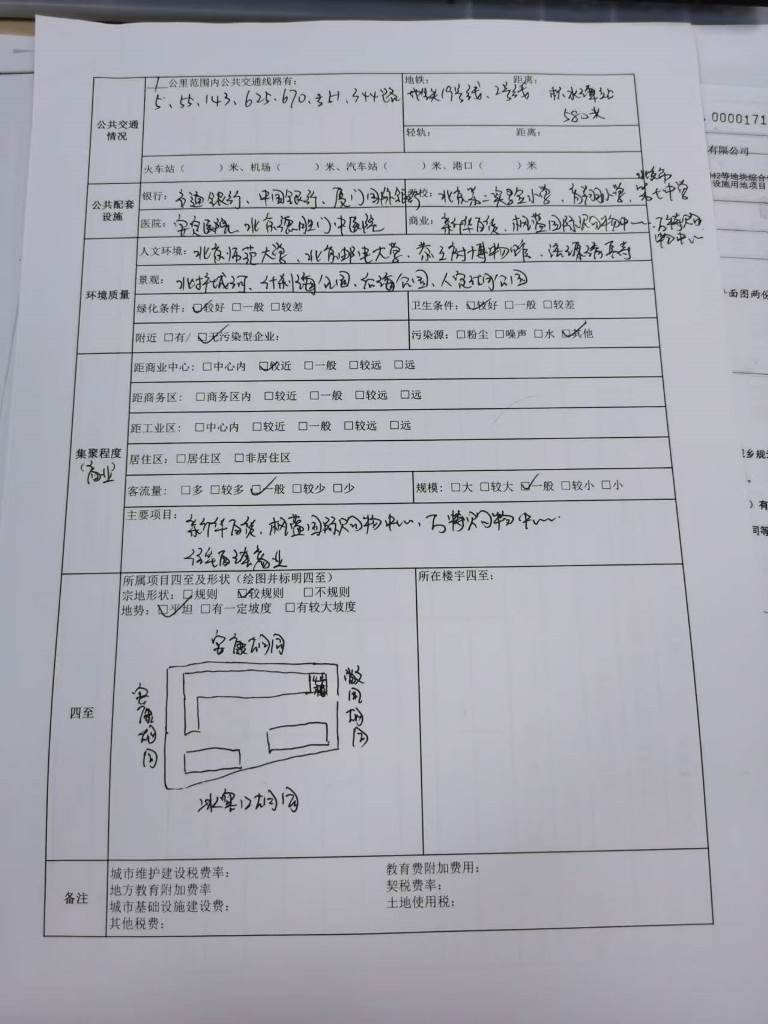 1公里范围内公共交通线路有：
5、55、143、625、670、专51、344路
公共交通情况
地铁： 距离：
地铁19号线、2号线 积水潭站
580米
轻轨： 距离：
火车站（ ）米、机场（ ）米、汽车站（ ）米、港口（ ）米
公共配套设施
银行：交通银行、中国银行、厦门国际银行
学校：北京第二实验小学、
北京市
第七中学
医院：安定医院、北京德胜门中医院
商业：新华百货、国际购物中心、万特购
物中心
环境质量
人文环境：北京师范大学、北京邮电大学、恭王府博物馆、
景观：北护城河、什刹海公园、后海公园、人定湖公园
绿化条件：☑较好 □一般 □较差
卫生条件：☑较好 □一般 □较差
附近 □有/☑无污染型企业：
污染源：□粉尘 □噪声 □水 ☑其他
集聚程度
（商业）
距商业中心：□中心内 ☑较近 □一般 □较远 □远
距商务区：□商务区内 □较近 □一般 □较远 □远
距工业区：□中心内 □较近 □一般 □较远 □远
居住区：□居住区 □非居住区
客流量：□多 □较多 ☑一般 □较少 □少
规模：□大 □较大 ☑一般 □较小 □小
主要项目：
新华百货、国际购物中心、万特购物中心
住宅底商商业
四至
所属项目四至及形状（绘图并标明四至）
宗地形状：□规则 ☑较规则 □不规则
地势：☑平坦 □有一定坡度 □有较大坡度
所在楼宇四至：
胡同
胡同
胡同
冰窖口胡同
备注
城市维护建设税费率：
教育费附加费用：
地方教育附加费率
契税费率：
城市基础设施建设费：
土地使用税：
其他税费：
0000171
有限公司